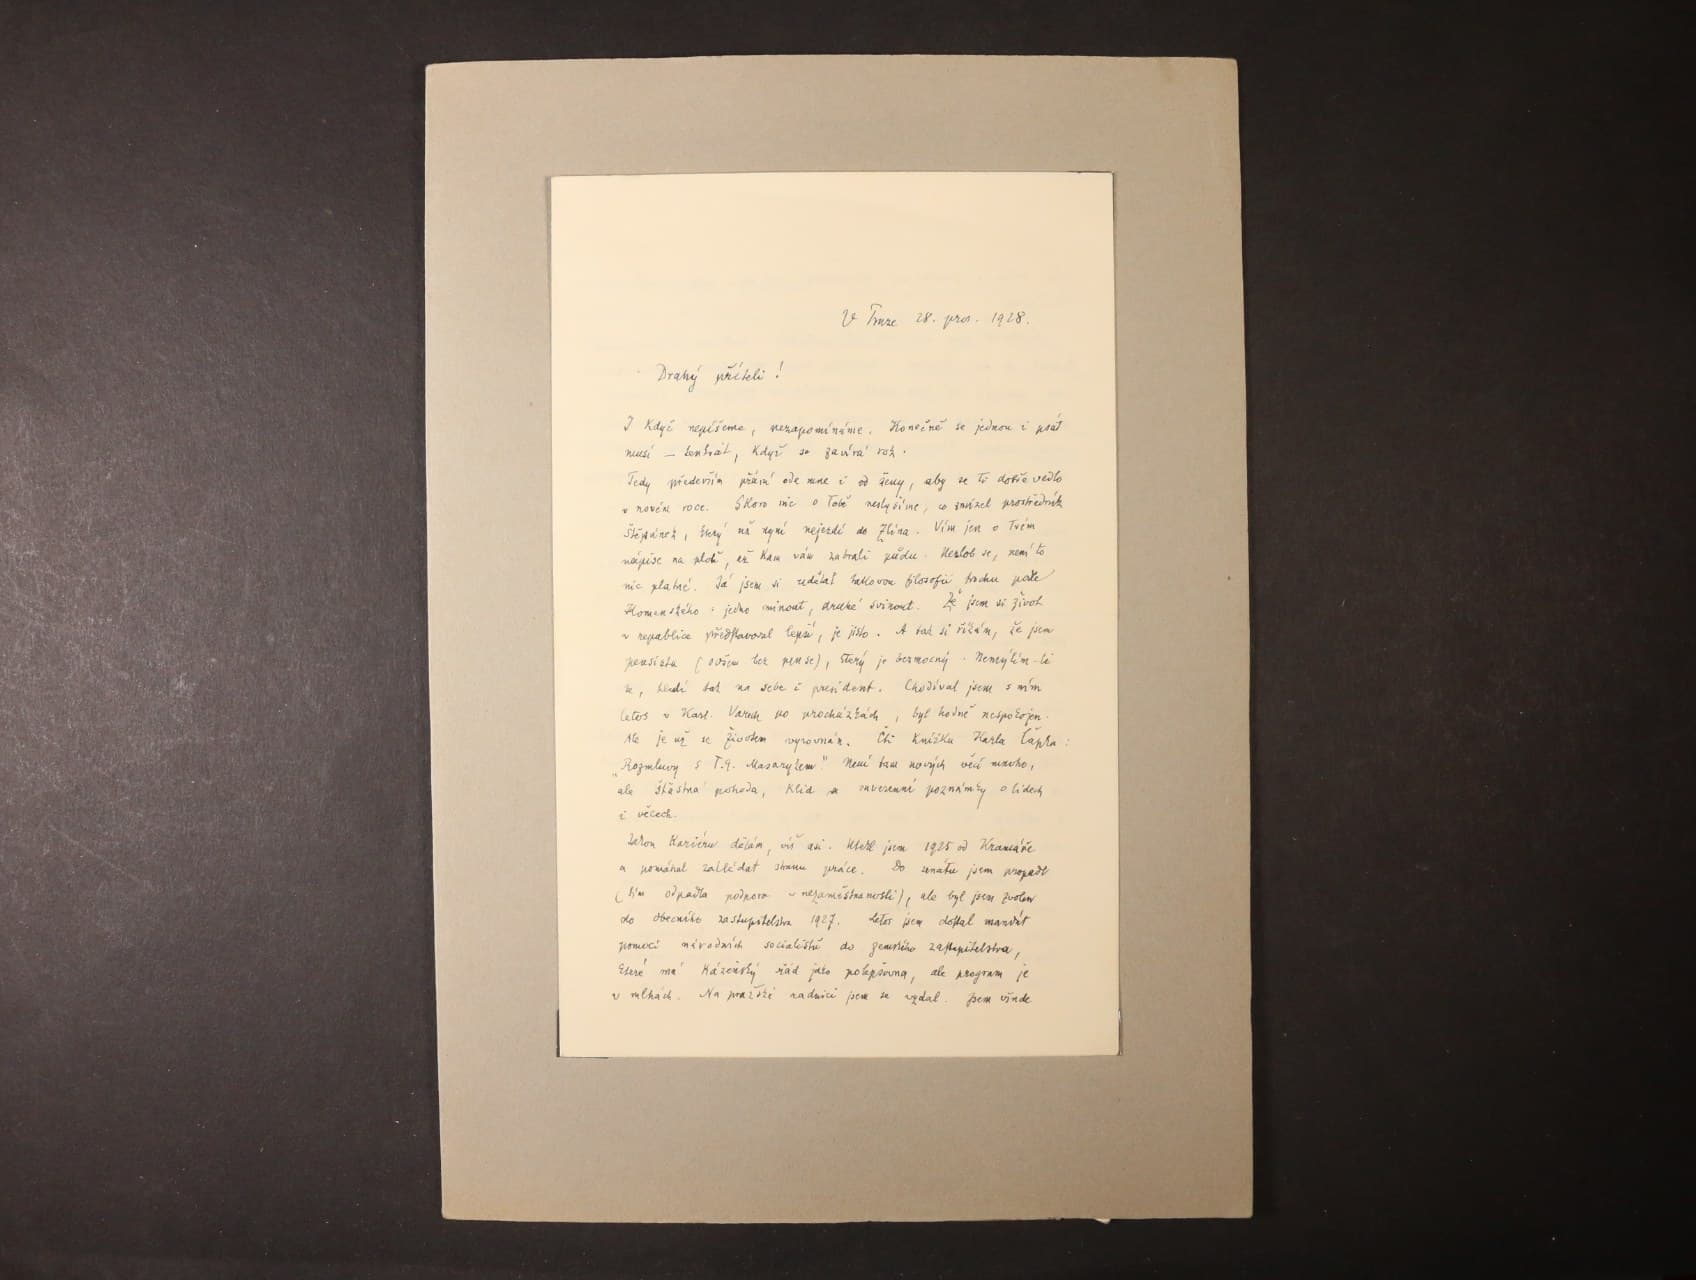 V Praze 28. pros. 1928.
Drahý příteli!
I když nepíšeme, nezapomínáme. Konečně se jednou i psát
musí — tentrát, když se zavírá rok.
Tedy především přání ode mne i od ženy, aby se Ti dobře vedlo
v novém roce. Skoro nic o Tobě neslyšíme, co zmizel prostředník
Štěpánek, který už nyní nejezdí do Zlína. Vím jen o Tvém
nápise na plotě, až kam vám zabrali půdu. Nezlob se, není to
nic platné. Já jsem si udělal takovou filosofii trochu podle
Komenského: jedno minout, druhé svinout. Že jsem si život
v republice představoval lepší, je jisto. A tak si říkám, že jsem
pensista (ovšem bez pense), který je bezmocný. Nemýlím-li
se, hledí tak na sebe i president. Chodíval jsem s ním
letos v Karl. Varech po procházkách, byl hodně nespokojen.
Ale je už se životem vyrovnán. Čti knížku Karla Čapka:
„Rozmluvy s T. G. Masarykem." Není tam nových věcí mnoho,
ale šťastná pohoda, klid a suverenní poznámky o lidech
i věcech.
Jakou kariéru dělám, víš asi. Utekl jsem 1925 od Kramáře
a pomáhal zakládat stranu práce. Do senátu jsem propadl
(tím odpadla podpora v nezaměstnanosti), ale byl jsem zvolen
do obecního zastupitelstva 1927. Letos jsem dostal mandát
pomocí národních socialistů do zemského zastupitelstva,
které má kázeňský řád jako polepšovna, ale program je
v mlhách. Na pražské radnici jsem se vzdal. Jsem všude